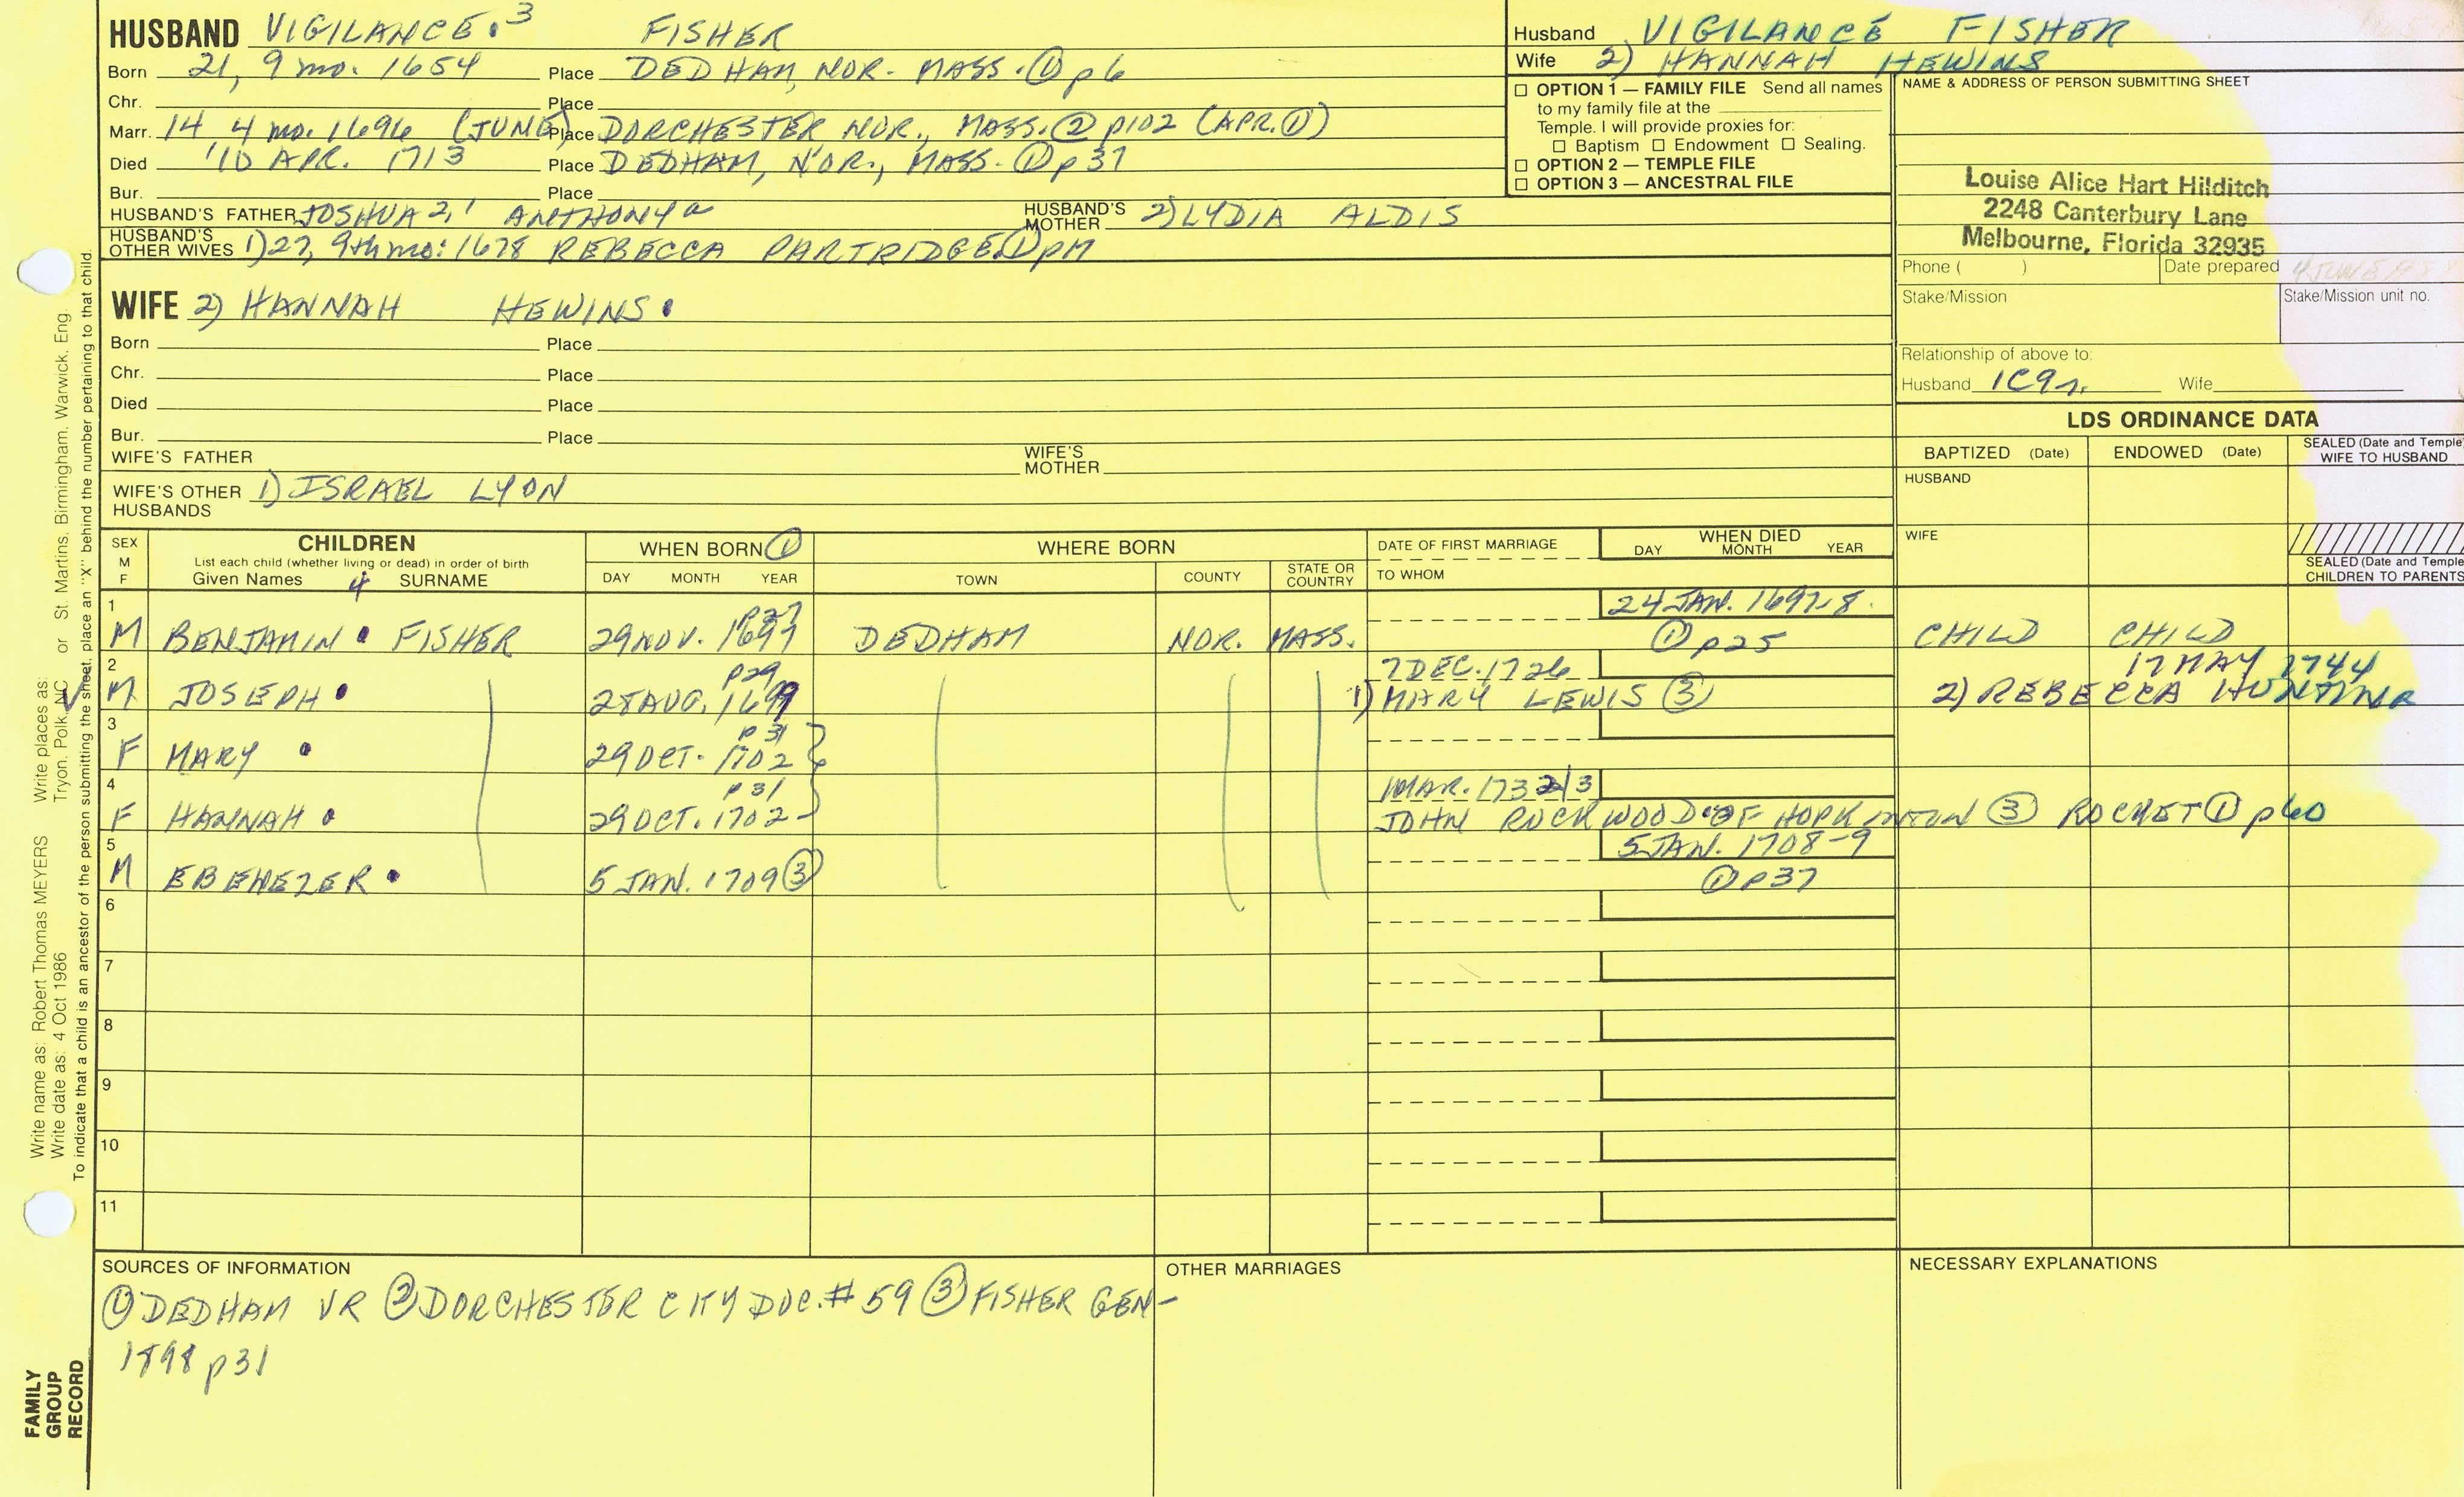 HUSBAND VIGILANCE.3 FISHER
Born 21, 9 mo. 1654 Place DEDHAM, NOR. MASS. ① p6
Chr. Place
Marr. 14 4 mo. 1696 (JUNE) Place DORCHESTER, NOR., MASS. ② p102 (APR. ①)
Died 10 APR. 1713 Place DEDHAM, NOR., MASS. ① p37
Bur. Place
HUSBAND'S FATHER JOSHUA 2,1 ANTHONY a HUSBAND'S MOTHER 2) LYDIA ALDIS
HUSBAND'S OTHER WIVES 1) 27, 9th mo: 1678 REBECCA PARTRIDGE ①
Husband VIGILANCE FISHER
Wife 2) HANNAH HEWINS
☐ OPTION 1 — FAMILY FILE Send all names
to my family file at the
Temple. I will provide proxies for:
☐ Baptism ☐ Endowment ☐ Sealing.
☐ OPTION 2 — TEMPLE FILE
☐ OPTION 3 — ANCESTRAL FILE
NAME & ADDRESS OF PERSON SUBMITTING SHEET
Louise Alice Hart Hilditch
2248 Canterbury Lane
Melbourne, Florida 32935
Phone ( ) Date prepared 4 JUNE
Stake/Mission Stake/Mission unit no.
Relationship of above to:
Husband 1C9r. Wife
WIFE 2) HANNAH HEWINS.
Born Place
Chr. Place
Died Place
Bur. Place
WIFE'S FATHER WIFE'S MOTHER
WIFE'S OTHER HUSBANDS 1) ISRAEL LYON
LDS ORDINANCE DATA
BAPTIZED (Date) ENDOWED (Date) SEALED (Date and Temple WIFE TO HUSBAND
HUSBAND
WIFE
SEALED (Date and Temple CHILDREN TO PARENTS
SEX M F
CHILDREN
List each child (whether living or dead) in order of birth
Given Names 4 SURNAME
WHEN BORN ①
DAY MONTH YEAR
WHERE BORN
TOWN COUNTY STATE OR COUNTRY
DATE OF FIRST MARRIAGE
TO WHOM
WHEN DIED
DAY MONTH YEAR
1 p27 24 JAN. 1697-8.
M BENJAMIN. FISHER 29 NOV. 1697 DEDHAM NOR. MASS. ① p25 CHILD CHILD
2 p29 7 DEC. 1726 17 MAY 1744
M JOSEPH. 28 AUG. 1699 1) MARY LEWIS ③ 2) REBECCA
3 p31
F MARY . 29 OCT. 1702
4 p31 1 MAR. 1732/3
F HANNAH. 29 OCT. 1702 JOHN ROCKWOOD OF HOPKINTON ③ ROCKET ① p60
5 5 JAN. 1708-9
M EBENEZER. 5 JAN. 1709 ③ ① p37
6
7
8
9
10
11
SOURCES OF INFORMATION
① DEDHAM VR ② DORCHESTER CITY DOC. # 59 ③ FISHER GEN-
1898 p31
OTHER MARRIAGES
NECESSARY EXPLANATIONS
Write name as: Robert Thomas MEYERS Write places as: Tryon, Polk, NC or St. Martins, Birmingham, Warwick, Eng.
Write date as: 4 Oct 1986
To indicate that a child is an ancestor of the person submitting the sheet, place an "X" behind the number pertaining to that child.
FAMILY
GROUP
RECORD